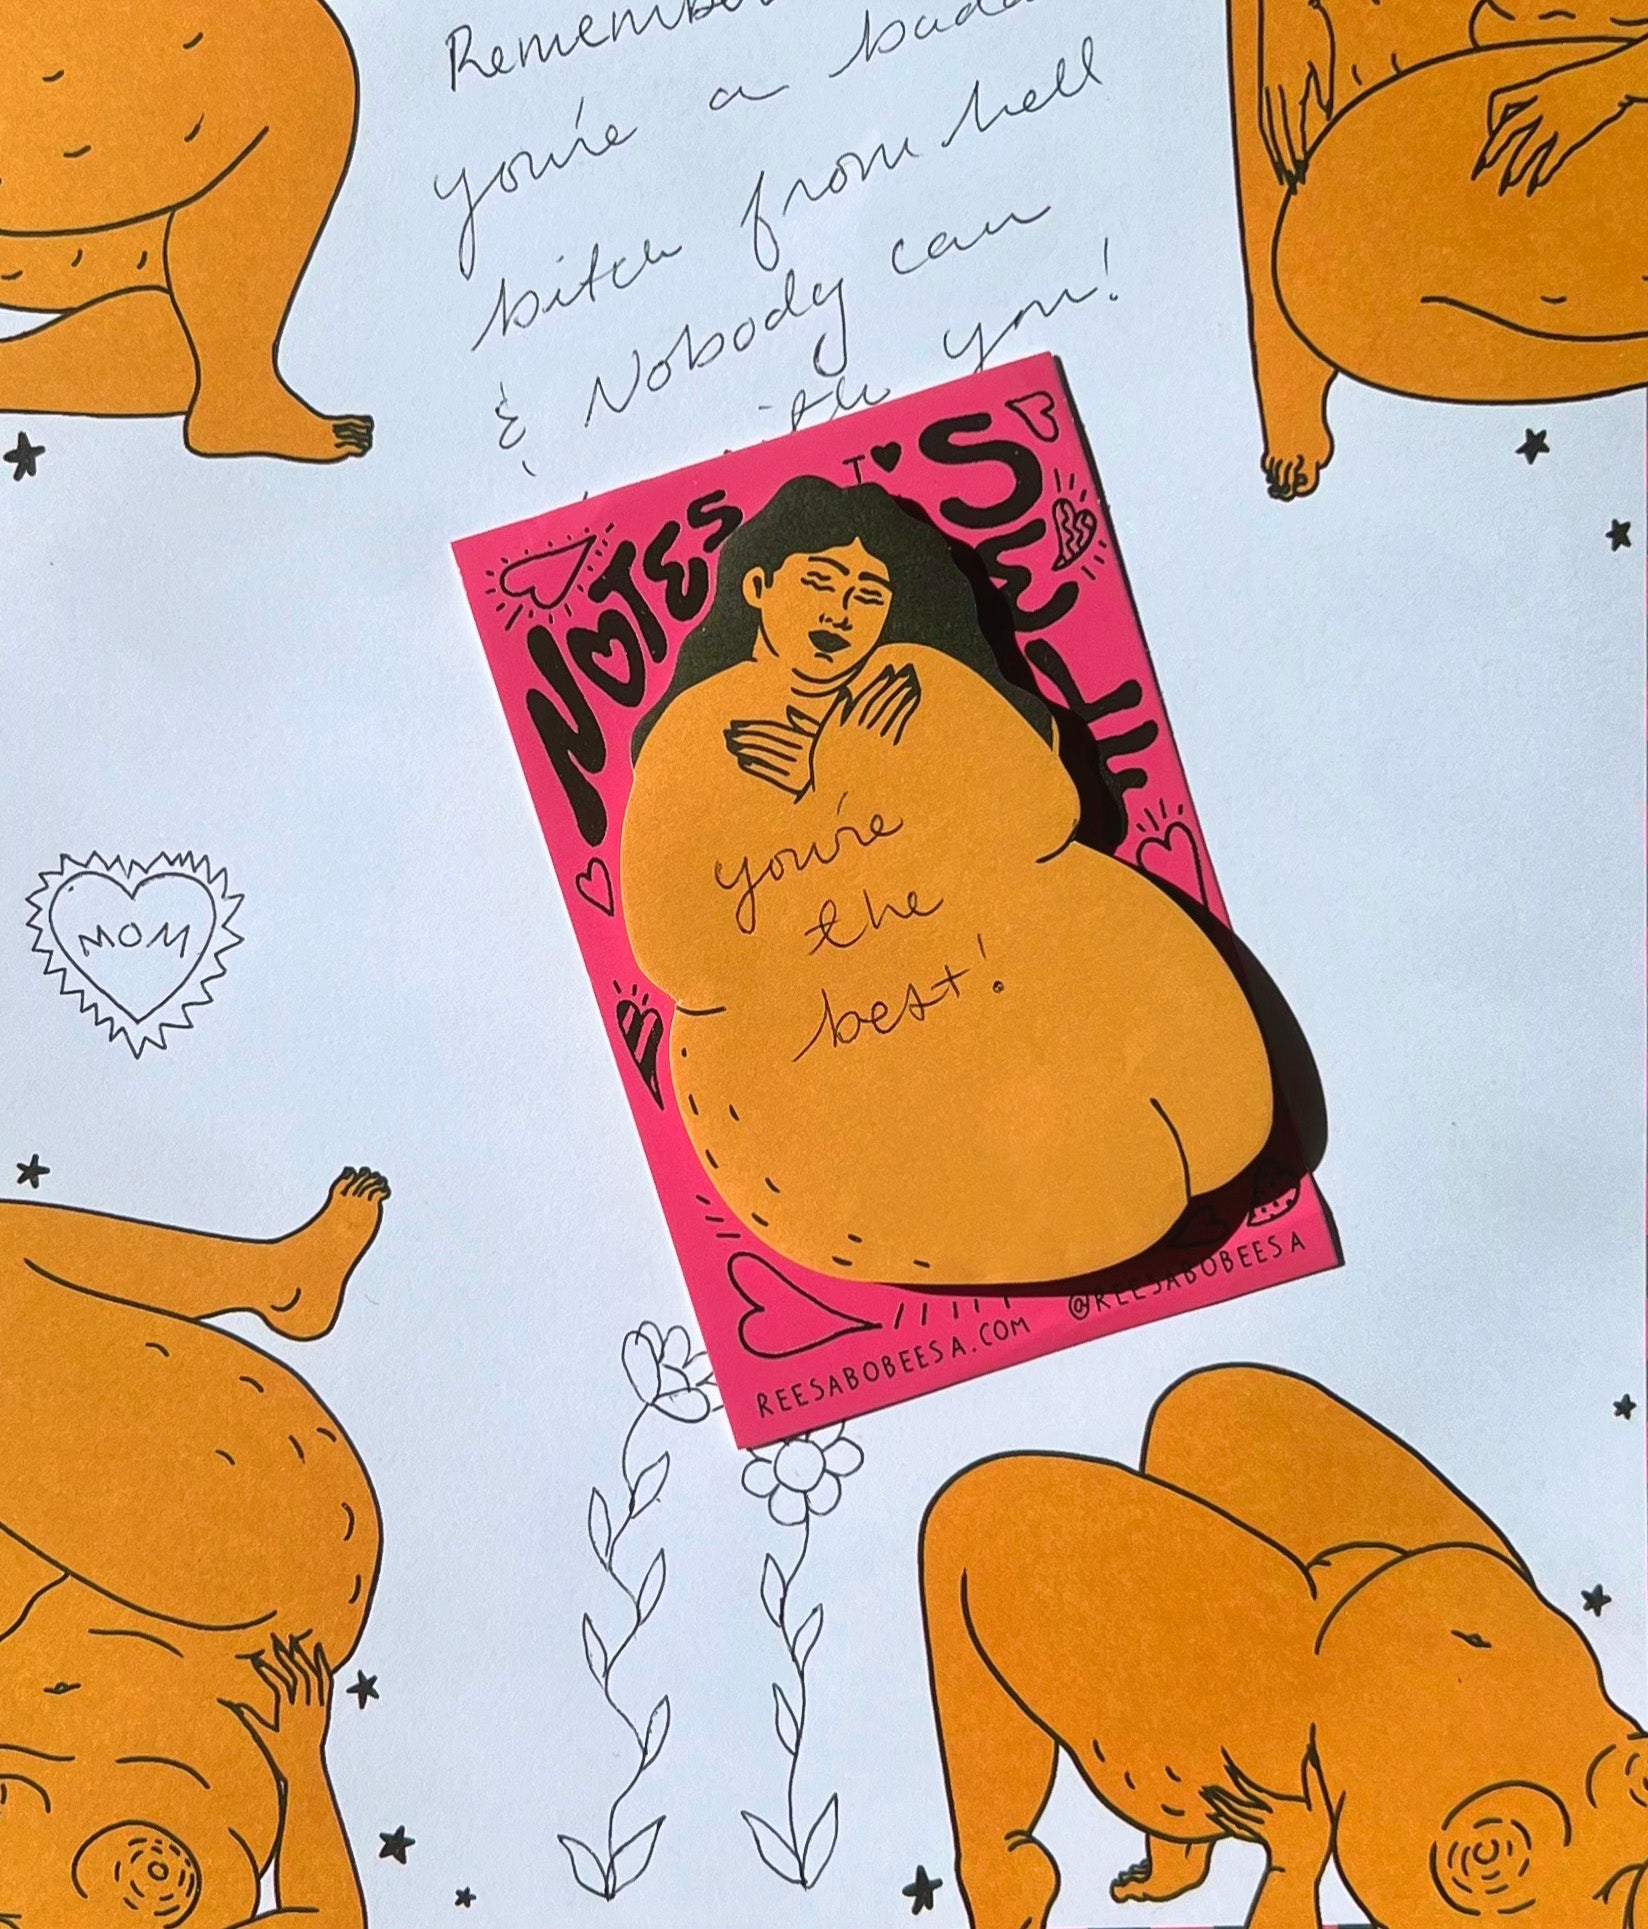 Remember
you're a
bitch from hell
& Nobody can
with you!
NOTES
TO
SELF
you're
the
best!
MOM
REESABOBEESA.COM
@REESABOBEESA